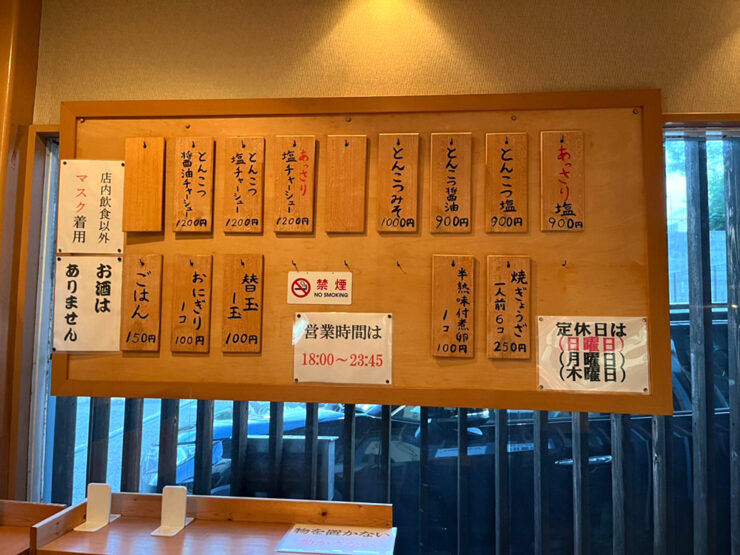 あっさり
塩
900円
とんこつ塩
900円
とんこつ
醤油
900円
とんこつみそ
1000円
あっさり
塩チャーシュー
1200円
とんこつ
塩チャーシュー
1200円
とんこつ
醤油チャーシュー
1200円
店内飲食以外
マスク着用
お酒は
ありません
焼ぎょうざ
一人前6コ
250円
半熟味付煮卵
1コ
100円
禁煙
NO SMOKING
営業時間は
18:00〜23:45
替玉
1玉
100円
おにぎり
1コ
100円
ごはん
150円
定休日は
(日曜日)
(月曜日)
(木曜日)
物を置かない